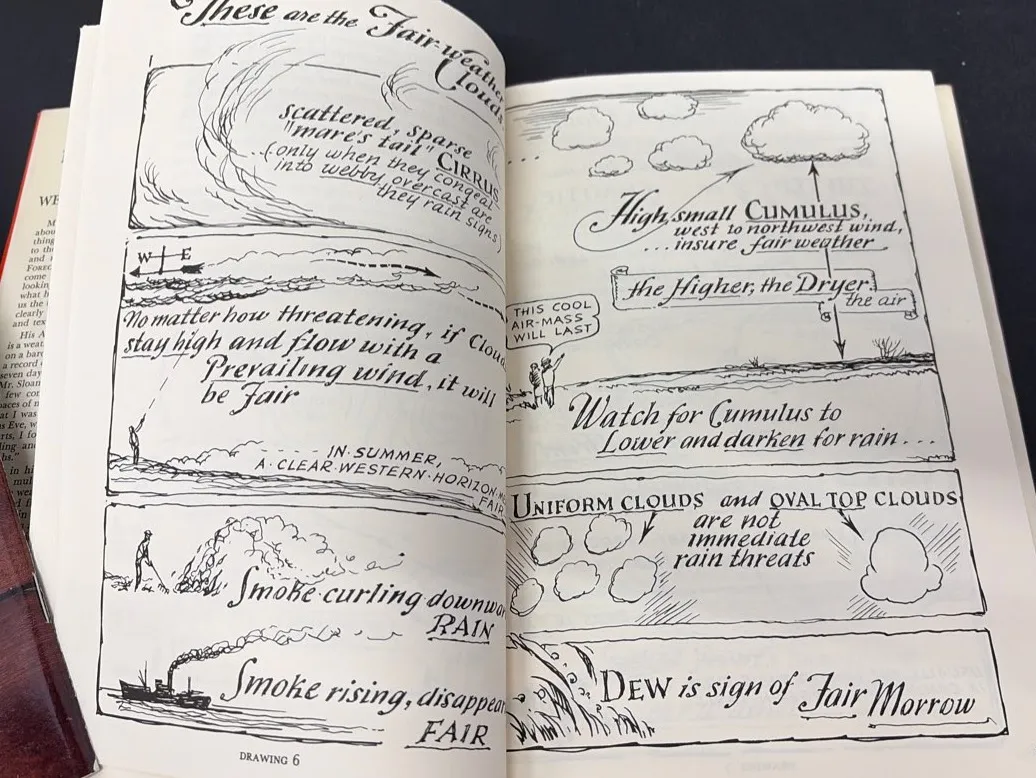 These are the Fair-weather
Clouds
scattered, sparse
"mare's tail" CIRRUS
...(only when they congeal
into webby overcast are
they rain signs)
W E
No matter how threatening, if Clouds
stay high and flow with a
Prevailing wind, it will
be Fair
IN SUMMER,
A CLEAR WESTERN HORIZON
FAIR
Smoke curling downwar
RAIN
Smoke rising, disappear
FAIR
DRAWING 6
High, small CUMULUS,
west to northwest wind,
...insure fair weather
the Higher, the Dryer
the air
THIS COOL
AIR-MASS
WILL LAST
Watch for Cumulus to
Lower and darken for rain...
UNIFORM CLOUDS and OVAL TOP CLOUDS
are not
immediate
rain threats
DEW is sign of Fair Morrow
WE
M
abou
thing
to th
and
FORE
come
looking
what h
us the
clearly
and tex
His A
is a weat
on a baro
a record
seven day
Mr. Sloan
few con
paces of n
at I was
us Eve, w
rts, I fo
ling and
hs."